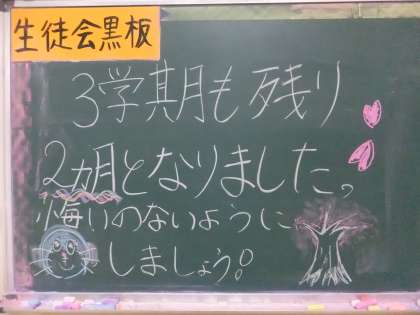 生徒会黒板
3学期も残り
2ヵ月となりました。
悔いのないように
しましょう!